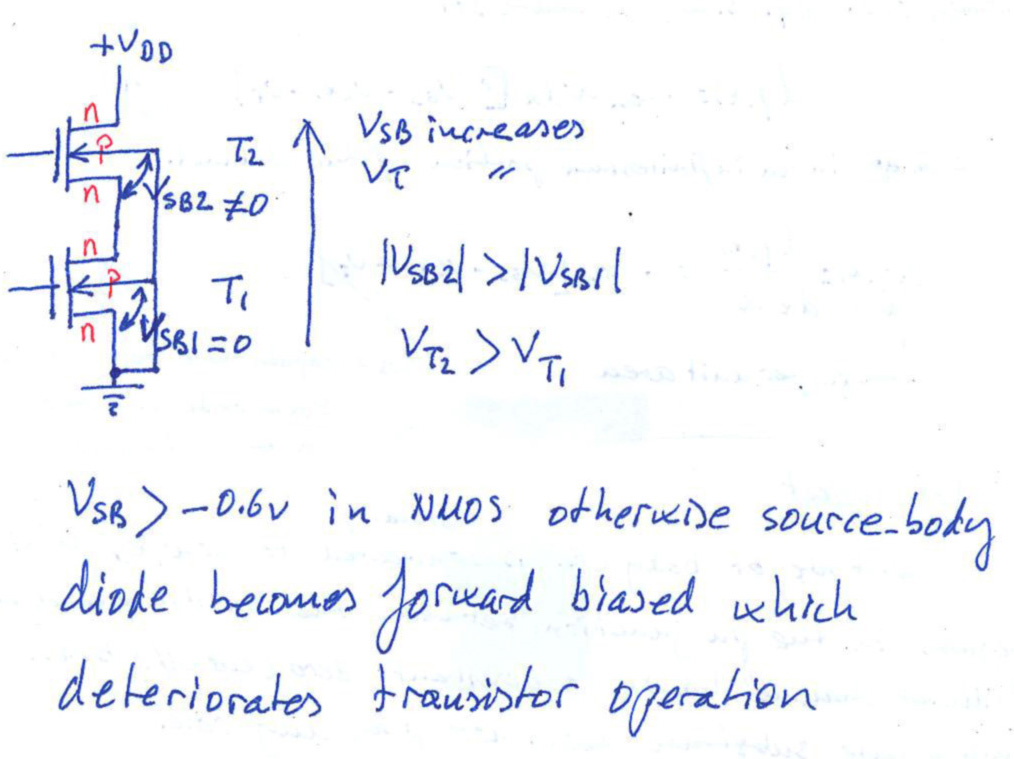 +VDD
n
p
n
T2
VSB2 ≠0
n
p
n
T1
VSB1 = 0
VSB increases
VT "
|VSB2| > |VSB1|
VT2 > VT1
VSB > -0.6v in NMOS otherwise source-body
diode becomes forward biased which
deteriorates transistor operation